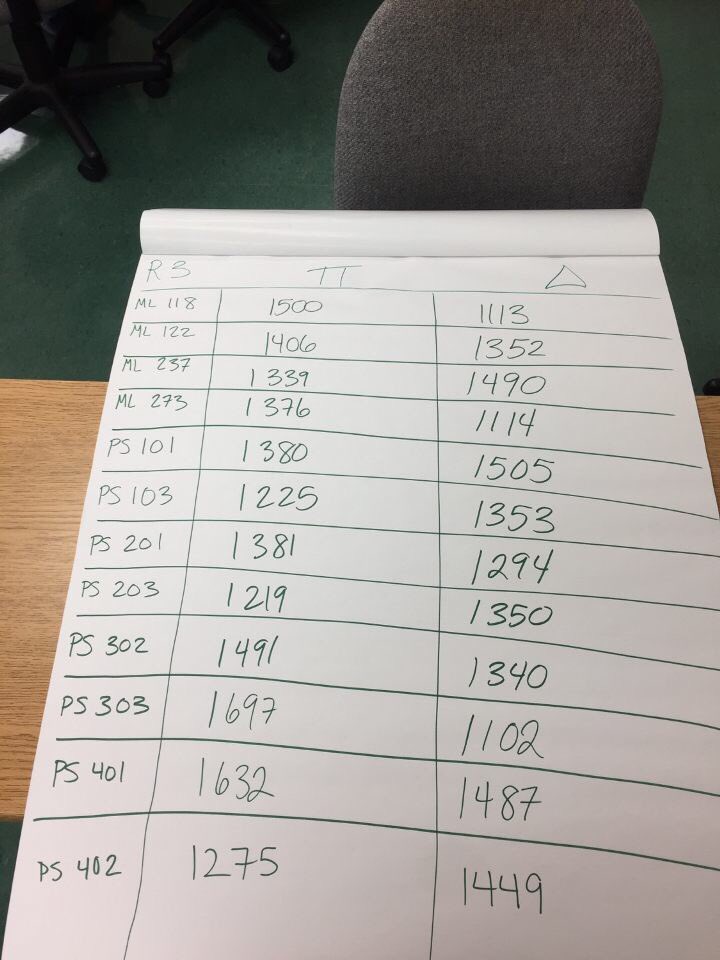 R3 π Δ
ML 118 1500 1113
ML 122 1406 1352
ML 237 1339 1490
ML 273 1376 1114
PS 101 1380 1505
PS 103 1225 1353
PS 201 1381 1294
PS 203 1219 1350
PS 302 1491 1340
PS 303 1697 1102
PS 401 1632 1487
PS 402 1275 1449